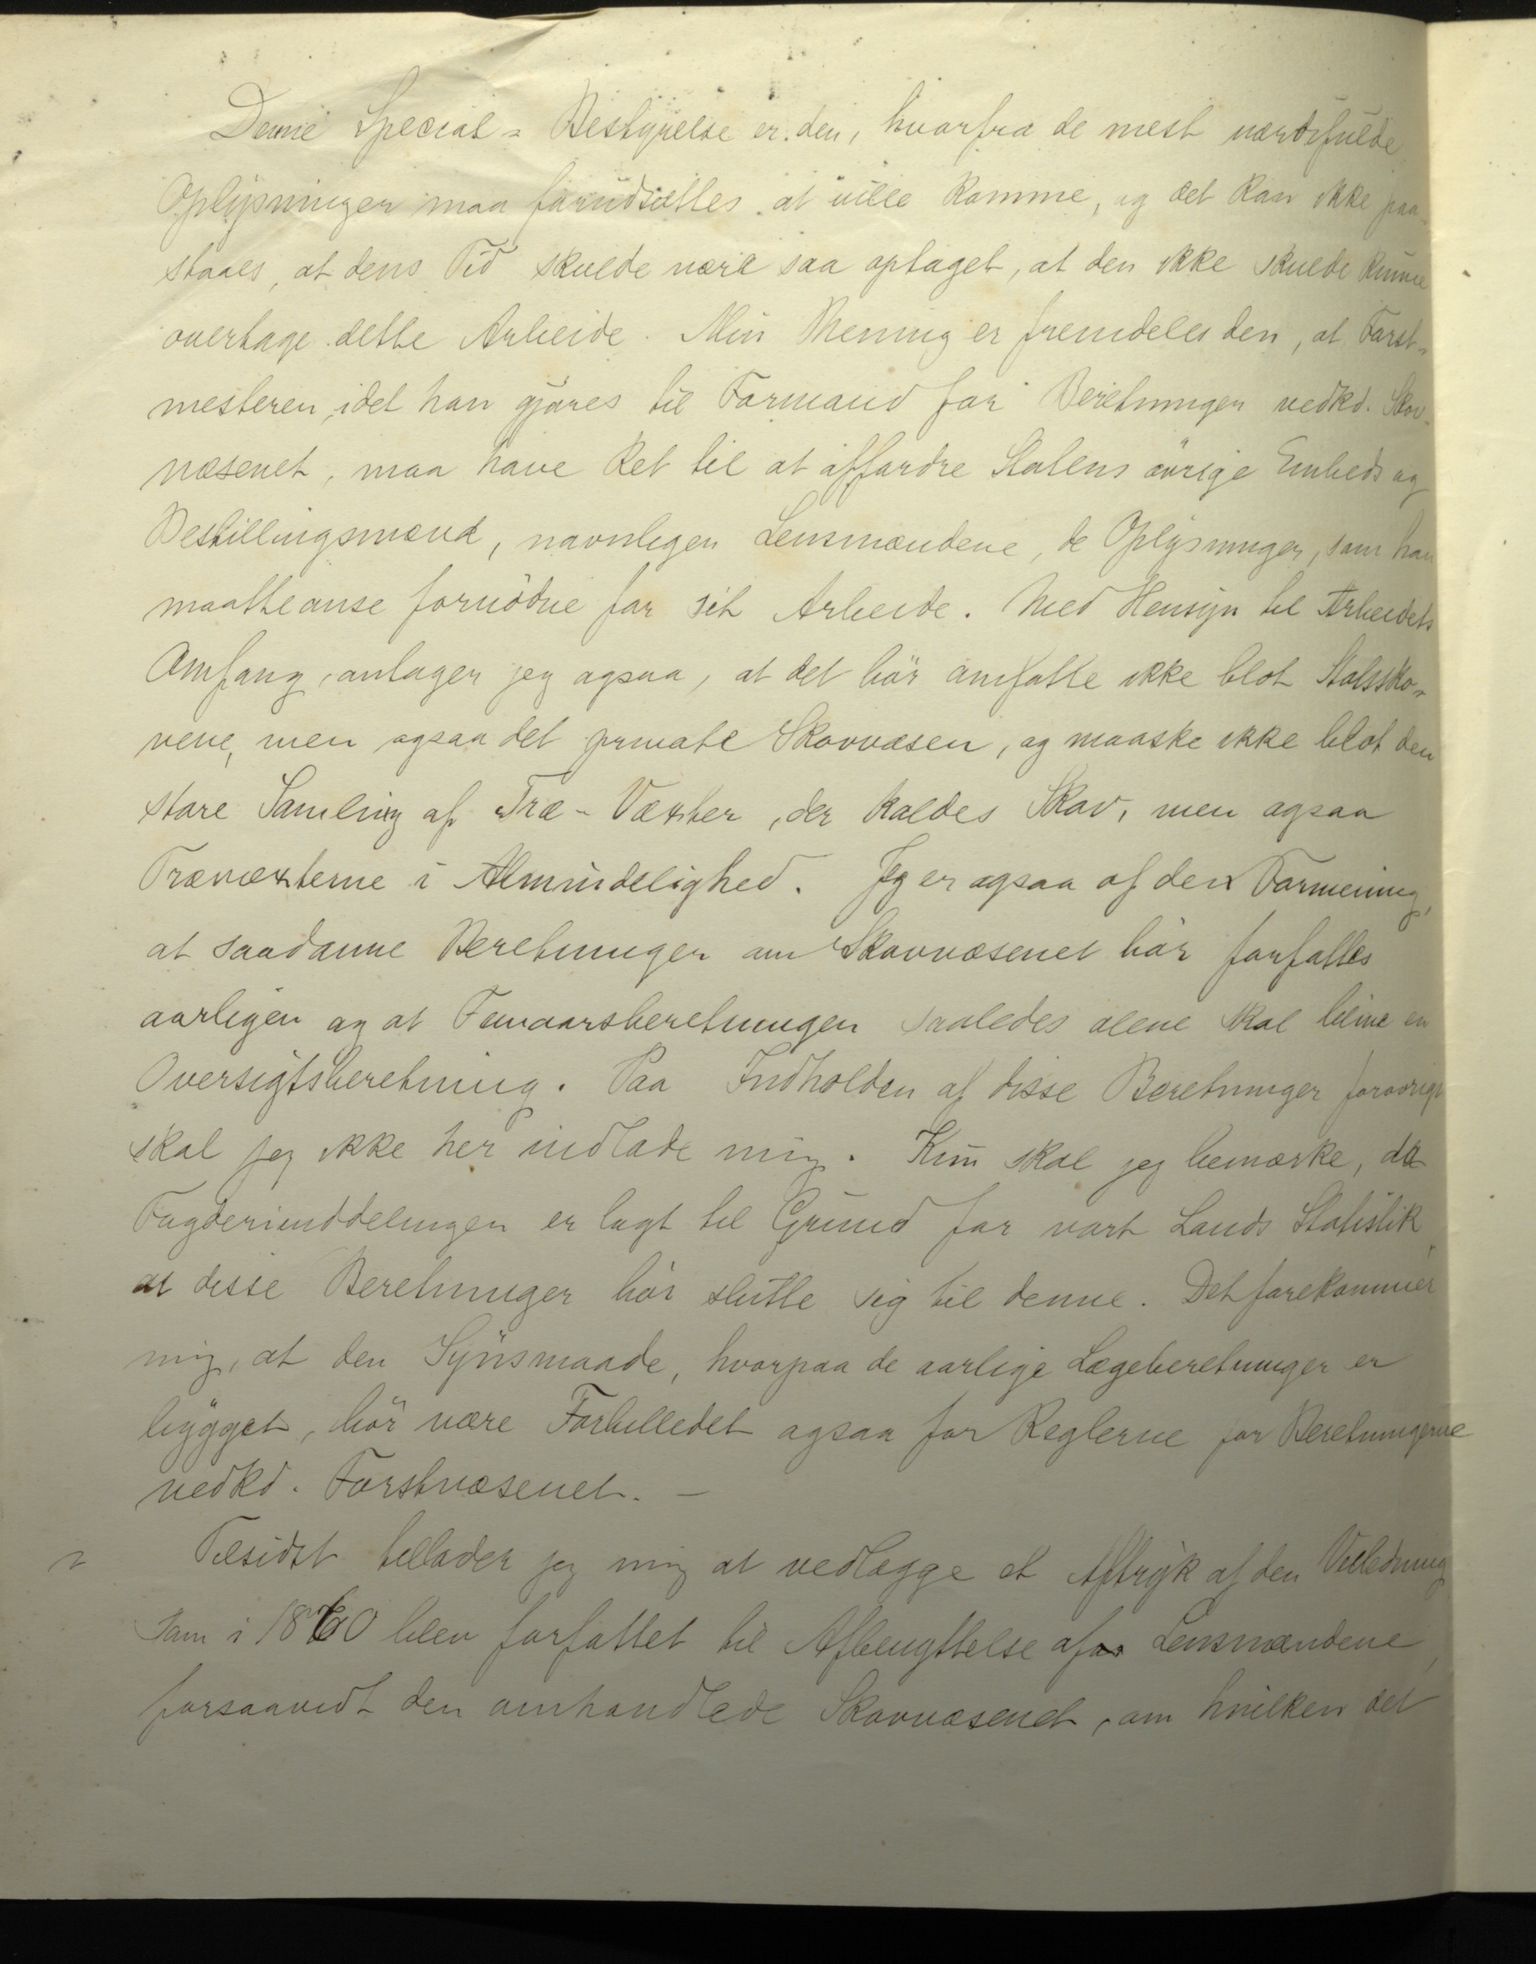 Denne Special-Bestyrelse er den, hvorfra de mest værdifulde
Oplysninger maa forudsættes at ville komme, og det kan ikke paa-
staaes, at dens Tid skulde være saa optaget, at den ikke skulde kunne
overtage dette Arbeide. Min Mening er fremdeles den, at Forst-
mesteren, idet han gjøres til Formand for Beretninger vedkd. Skov-
væsenet, maa have Ret til at affordre Statens øvrige Embeds og
Bestillingsmænd, navnligen Lensmændene, de Oplysninger, som han
maatte anse fornödne for sit Arbeide. Med Hensyn til Arbeidets
Omfang, antager jeg ogsaa, at det bör omfatte ikke blot Statssko-
vene, men ogsaa det private Skovvæsen, og maaske ikke blot den
store Samling af Træ-Væxter, der kaldes Skov, men ogsaa
Trævæxterne i Almindelighed. Jeg er ogsaa af den Formening,
at saadanne Beretninger om Skovvæsenet bör forfattes
aarligen og at Femaarsberetningen saaledes alene skal blive en
Oversigtsberetning. Paa Indholden af disse Beretninger forøvrigt
skal jeg ikke her indlade mig. Kun skal jeg bemærke, da
Fogderiinddelingen er lagt til Grund for vort Lands Statistik,
at disse Beretninger bör slutte sig til denne. Det forekommer
mig, at den Synsmaade, hvorpaa de aarlige Lægeberetninger er
bygget, bör være Forbilledet ogsaa for Reglerne for Beretningerne
vedkd. Forstvæsenet. —
Tilsidst tillader jeg mig at vedlægge et Aftryk af den Veiledning
som i 1860 blev forfattet til Afbenyttelse af Lensmændene,
forsaavidt den omhandlede Skovvæsenet, om hvilken det